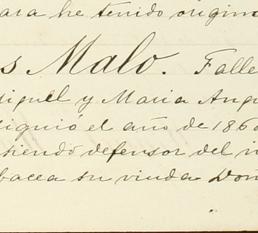 ara he tenido origina
s Malo. Falle
iguel y Maria Angu
liquió el año de 186
siendo defensor del
bacea su viuda Don